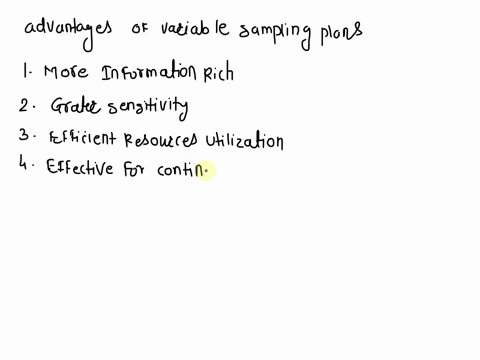 advantages of variable sampling plans
1. More Information Rich
2. Grater sensitivity
3. Efficient Resources Utilization
4. Effective For contin